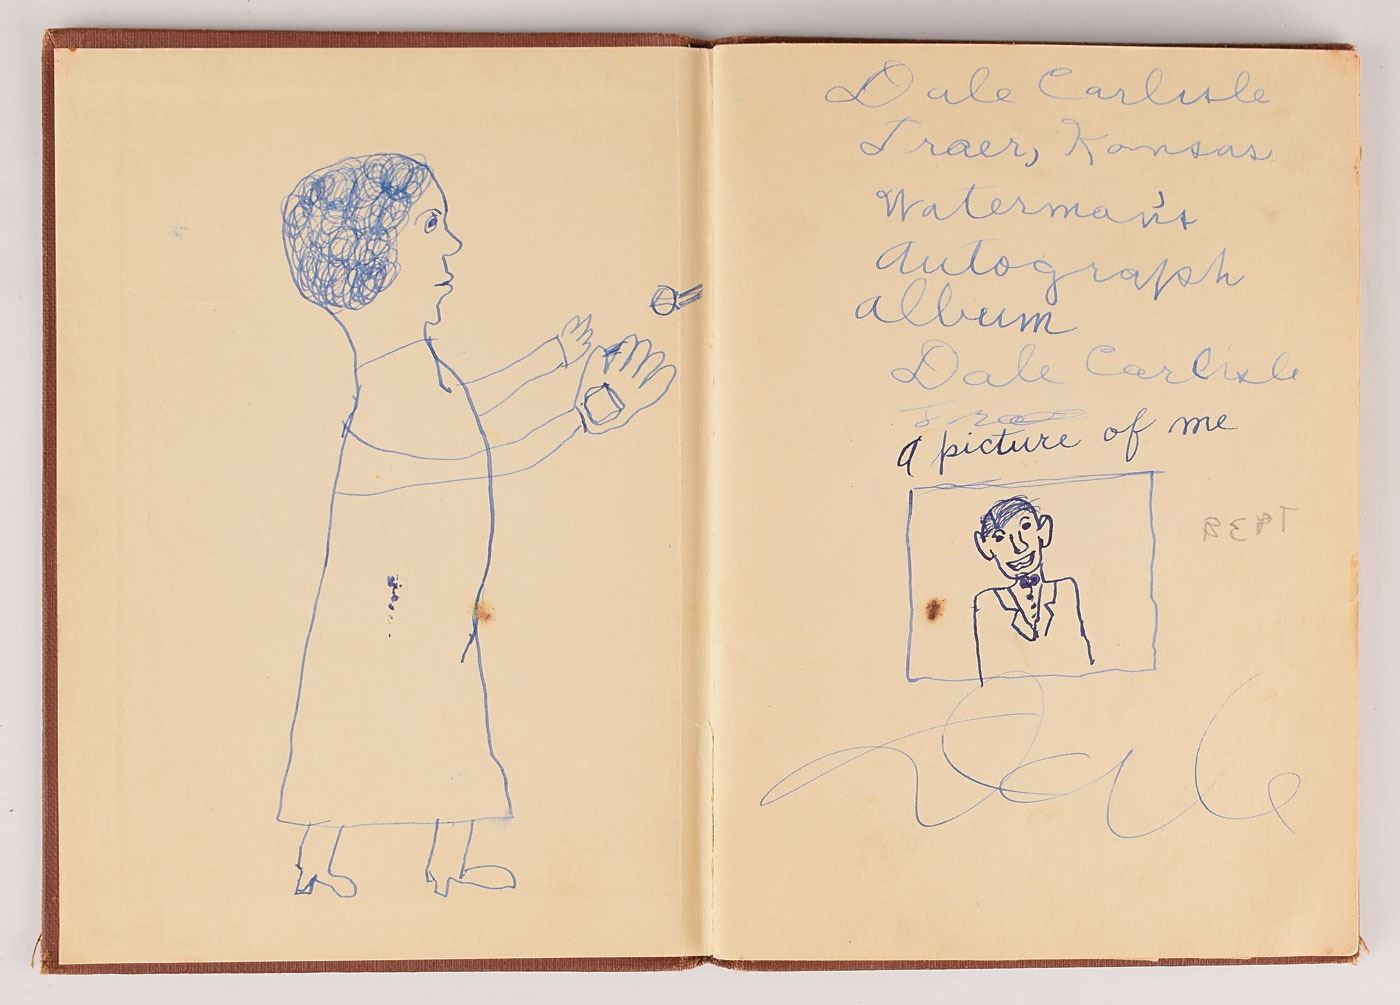 Dale Carlisle
Traer, Kansas
Waterman's
Autograph
album
Dale Carlisle
Trae
a picture of me
Dale